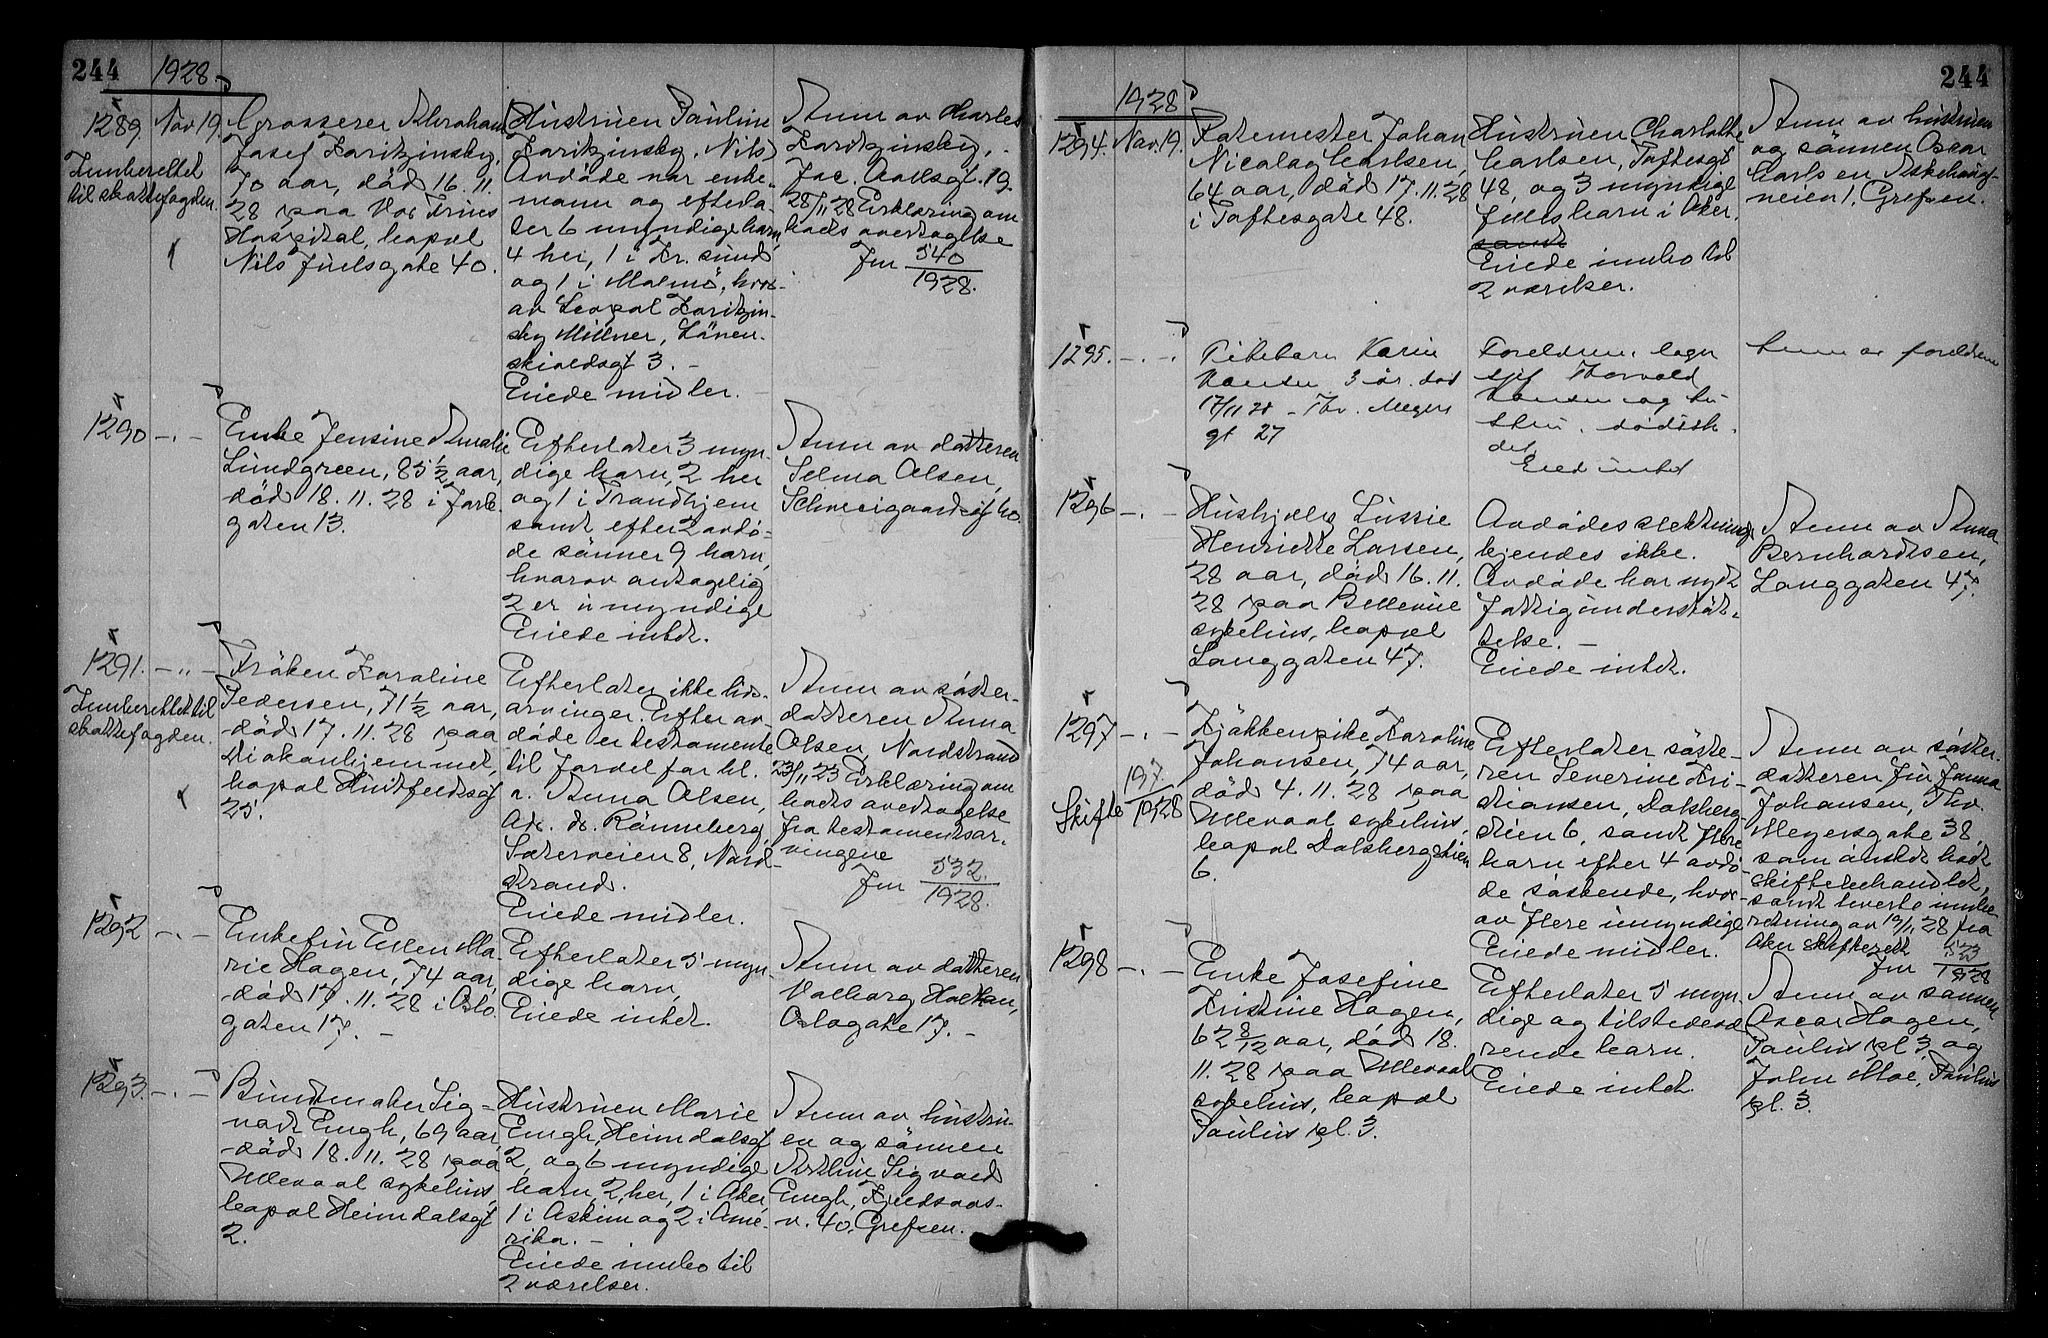 244
1928.
1289.
Nov 19.
Indberettet
til skattefogden.
Grosserer Abraham
Josef Koritzinsky,
70 aar, död 16.11.
28 paa Vor Frues
Hospital, bopæl
Nils Juelsgate 40.
Hustruen Pauline
Koritzinsky. Nils
Avdöde var enke-
mann og efterla-
ter 6 myndige barn,
4 her, 1 i Kr. sund
og 1 i Malmö, hvor-
av Leopol Koritzin-
sky Millner, Löven-
skioldsgt 3. -
Eiede midler.
Anm av Charles
Koritzinsky,
Jac. Aallsgt. 19.
28/11 28 Erklæring om
bods overtagelse
Jnr 540
1928.
1290 -.-
Enke Jensine Amalie
Lundgreen, 85 1/2 aar,
död 18.11.28 i Jarle-
gaten 13.
Efterlater 3 myn
dige barn, 2 her
og 1 i Trondhjem
samt efter 2 avdö-
de sönner 9 barn,
hvorav antagelig
2 er umyndige
Eiede intet.
Anm av datteren
Selma Olsen,
Schweigaardsgt 60.
1291. -"-
Indberettet til
skattefogden.
Fröken Karoline
Pedersen, 71 1/2 aar,
död 17.11.28 paa
Diakonhjemmet,
bopæl Huitfeldtsgt
25.
Efterlater ikke livs-
arvinger. Efter av-
döde er testamente
til fordel for bl.
a. Anna Olsen,
Adr. h. Rönneberg,
Sæterveien 8, Nord-
strand.
Eiede midler.
Anm av söster-
datteren Anna
Olsen, Nordstrand
23/11 23 Erklæring om
bods overtagelse
fra testamentsar-
vingene
Jnr 532.
1928.
1292 -.-
Enkefru Ellen Ma-
rie Hagen, 74 aar,
död 17.11.28 i Oslo
gaten 17. -
Efterlater 5 myn
dige barn,
Eiede intet.
Anm av datteren
Valborg Holtan,
Oslogate 17. -
1293. -.-
Buntmaker Sig-
vart Engh, 69 aar,
död 18.11.28 paa
Ullevaal sykehus,
bopæl Heimdalsgt
2.
Hustruen Marie
Engh, Heimdalsgt
2, og 6 myndige
barn, 2 her, 1 i Aker,
1 i Askim og 2 i Ame-
rika. -
Eiede innbo til
2 værelser.
Anm av hustru-
en og sönnen
Sigvard
Engh, Kjelsaas-
v. 40, Grefsen.
244
1928
1294. Nov. 19.
Johan
Nicolay Carlsen,
64 aar, död 17.11.28
i Toftesgate 48.
Hustruen Charlotte
Carlsen, Toftesgt
48, og 3 myndige
fells barn i Aker.
samt
Eiede innbo til
2 værelser.
Anm av hustruen
og sönnen Oscar
Carlsen Askehoug-
veien 1, Grefsen.
1295. -.-
Pikebarn Karin
Hansen 3 år. död
17/11 28 - Thv. Meyers
gt 27
Foreldrene, lager
sjef Thorvald
Hansen og hu-
stru. dödsste-
det
Eied intet
Anm av foreldrene
1296 -.-
Hushjelp Lussie
Henriette Larsen,
28 aar, död 16.11.
28 paa Bellevue
sykehus, bopæl
Langgaten 47.
Avdödes slektninge
kjendes ikke.
Avdöde har nydt
fattigunderstöt-
telse. -
Eiede intet.
Anm av Anna
Bernhardtsen,
Langgaten 47.
1297 -.-
Skifte 197
1928
Kjökkenpike Karoline
Johansen, 74 aar,
död 4.11.28 paa
Ullevaal sykehus,
bopæl Dalsbergstien
6.
Efterlater söste-
ren Severine Kri-
stiansen, Dalsberg-
stien 6, samt flere
barn efter 4 avdö-
de söskende, hvor-
av flere umyndige
Eiede midler.
Anm av söster-
datteren frk Janna
Johansen, Thv.
Meyersgate 38,
som önsket bodet
skiftebehandlet,
samt leverte innbe-
retning av 19/11 28 fra
Aker skifterett
Jnr 523
1928
1298 -.-
Enke Josefine
Kristine Hagen,
62 8/12 aar, död 18.
11.28 paa Ullevaal
sykehus, bopæl
Paulus pl. 3.
Efterlater 5 myn
dige og tilstedevæ
rende barn.
Eiede intet
Anm av sönnen
Oscar Hagen,
Paulus pl 3 og
John Moe, Paulus
pl. 3.